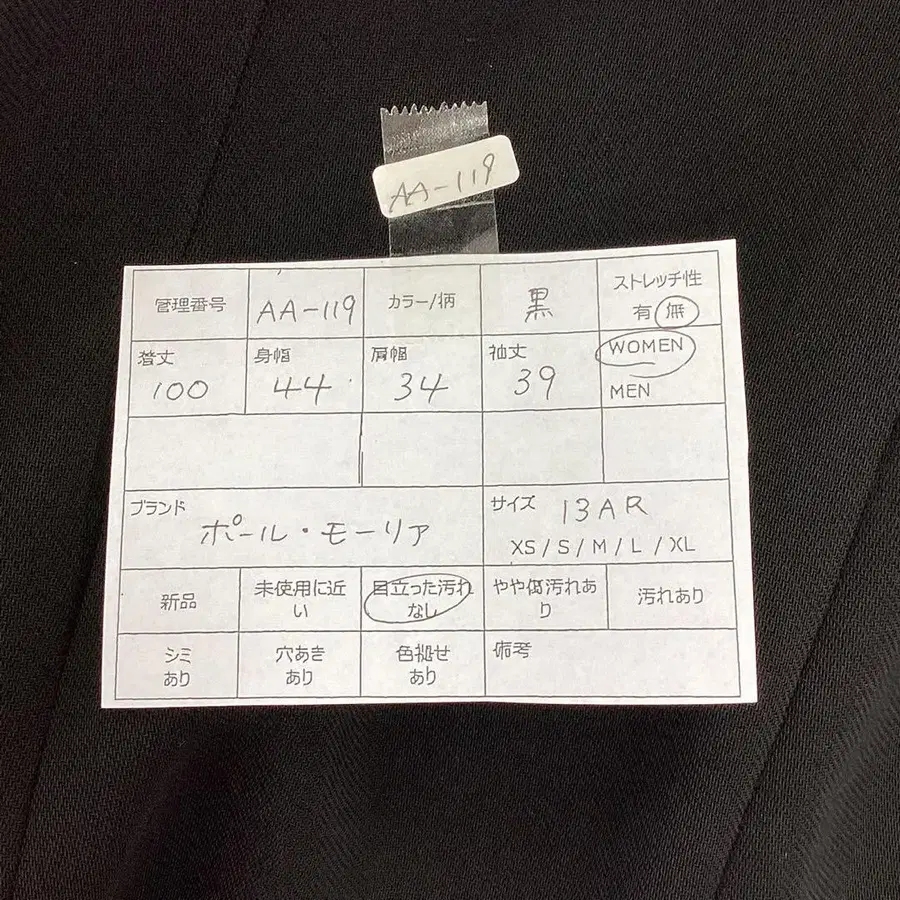 AA-119
管理番号
AA-119
カラー/柄
黒
ストレッチ性
有 無
着丈
100
身幅
44
肩幅
34
袖丈
39
WOMEN
MEN
ブランド
ポール・モーリア
サイズ 13AR
XS/S/M/L/XL
新品
未使用に近
い
目立った汚れ
なし
やや傷汚れあ
り
汚れあり
シミ
あり
穴あき
あり
色褪せ
あり
備考